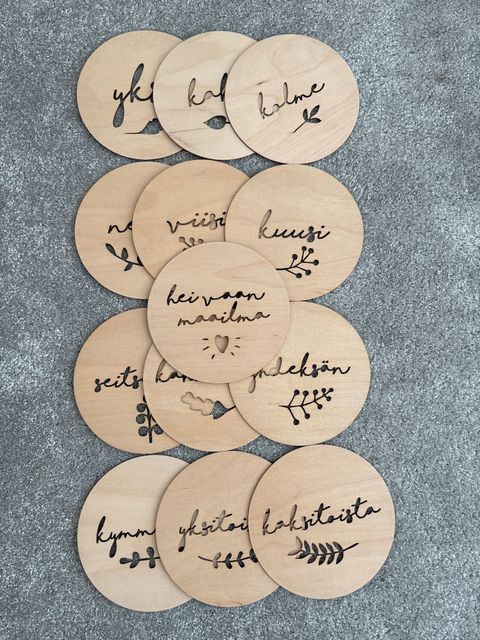 yks
kah
kolme
ne
viisi
kuusi
hei vaan
maailma
seits
kah
yhdeksän
kymm
yksitoi
kaksitoista